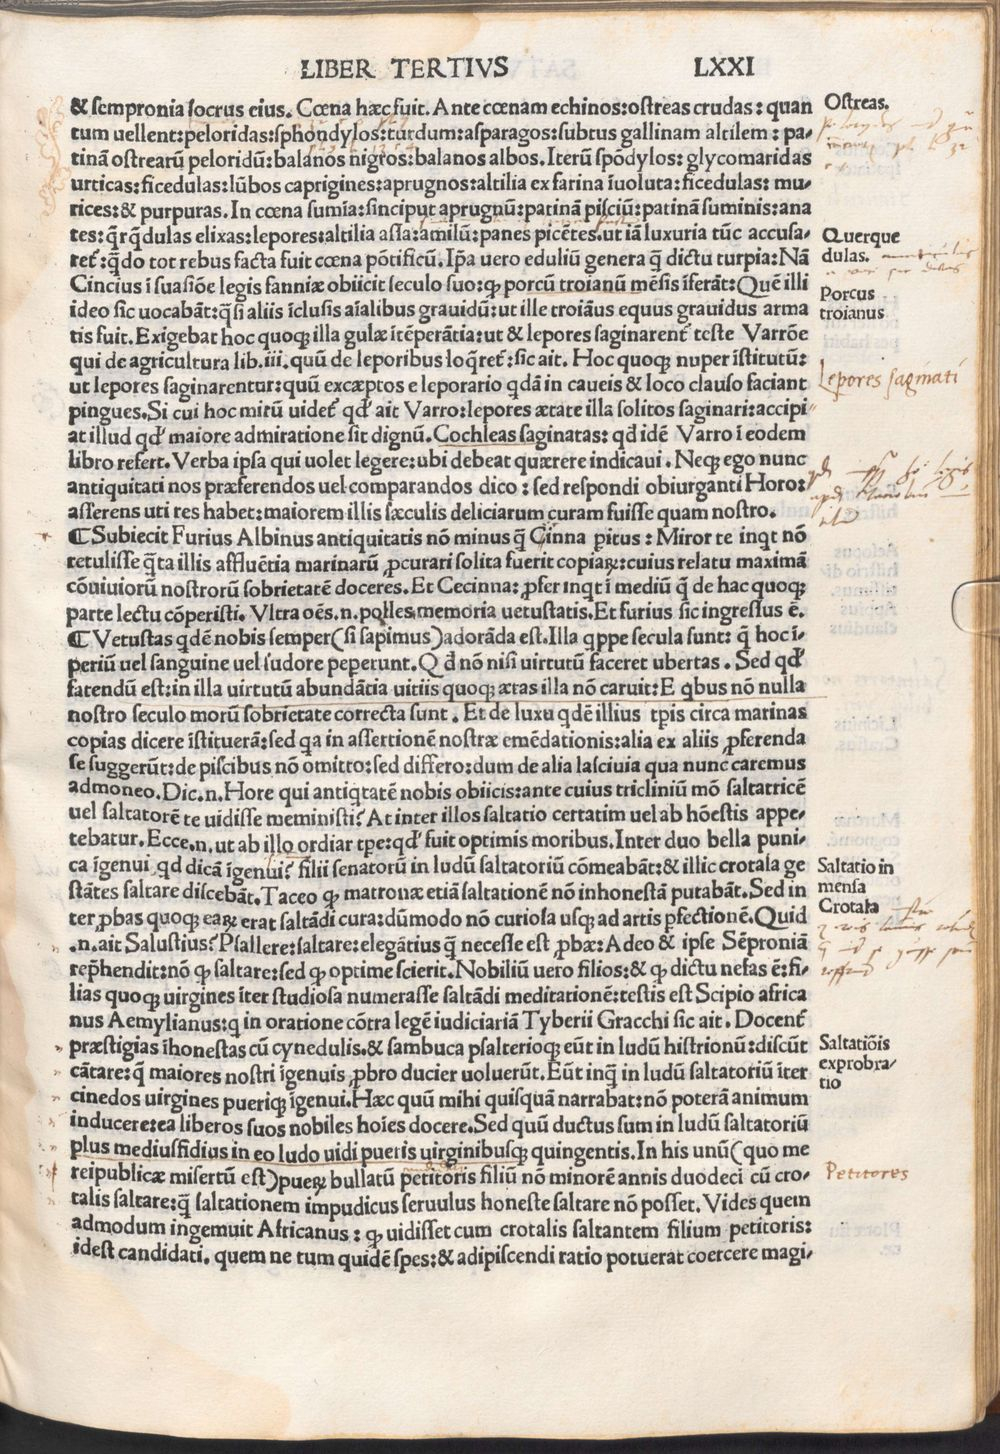 LIBER TERTIVS LXXI
& sempronia socrus eius. Cœna hæc fuit. Ante cœnam echinos:ostreas crudas: quan
tum uellent:peloridas:sphondylos:turdum:asparagos:subtus gallinam altilem: pa-
tinā ostrearū peloridū:balanos nigros:balanos albos. Iterū spōdylos: glycomaridas
urticas:ficedulas:lūbos caprigines:aprugnos:altilia ex farina īuoluta:ficedulas: mu-
rices:& purpuras. In cœna sumia:sinciput aprugnū:patinā pisciū:patinā suminis:ana
tes:q̄rq̄dulas elixas:lepores:altilia assa:amilū:panes picētes.ut iā luxuria tūc accusa-
ret̄:q̄do tot rebus facta fuit cœna pōtificū. Ip̄a uero eduliū genera q̄ dictu turpia:Nā
Cincius ī suasiōe legis fanniæ obiicit seculo suo:ꝙ porcū troianū mēsis īferāt:Quē illi
ideo sic uocabāt:q̄si aliis īclusis aīalibus grauidū:ut ille troiāus equus grauidus arma
tis fuit. Exigebat hoc quoqꝫ illa gulæ ītēperātia:ut & lepores saginarent̄ teste Varrōe
qui de agricultura lib.iii.quū de leporibus loq̄ret̄:sic ait. Hoc quoqꝫ nuper īstitutū:
ut lepores saginarentur:quū excæptos e leporario qdā in caueis & loco clauso faciant
pingues.Si cui hoc mirū uidet̄ qđ ait Varro:lepores ætate illa solitos saginari:accipi
at illud qđ maiore admiratione sit dignū.Cochleas saginatas: qđ idē Varro ī eodem
libro refert.Verba ipsa qui uolet legere:ubi debeat quærere indicaui. Neqꝫ ego nunc
antiquitati nos præferendos uel comparandos dico: sed respondi obiurganti Horo:
asserens uti res habet:maiorem illis sæculis deliciarum curam fuisse quam nostro.
¶ Subiecit Furius Albinus antiquitatis nō minus q̄ Cinna pitus: Miror te inqt nō
retulisse q̄ta illis affluētia marinarū ꝓcurari solita fuerit copiaꝝ:cuius relatu maximā
cōuiuiorū nostrorū sobrietatē doceres. Et Cecinna: ꝓfer inqt ī mediū q̄ de hac quoqꝫ
parte lectu cōperisti. Vltra oēs.n.polles memoria uetustatis.Et furius sic ingressus ē.
¶ Vetustas qdē nobis semper(si sapimus)adorāda est.Illa qppe secula sunt: q̄ hoc ī-
periū uel sanguine uel sudore peperunt.Q đ nō nisi virtutū faceret ubertas. Sed qđ
fatendū est:in illa uirtutū abundātia uitiis quoqꝫ ætas illa nō caruit:E qbus nō nulla
nostro seculo morū sobrietate correcta sunt. Et de luxu qdē illius tp̄is circa marinas
copias dicere īstituerā:sed qa in assertionē nostræ emēdationis:alia ex aliis ꝓferenda
se suggerūt:de piscibus nō omitto:sed differo:dum de alia lasciuia qua nunc caremus
admoneo.Dic.n.Hore qui antiqtatē nobis obiicis:ante cuius tricliniū mō saltatricē
uel saltatorē te uidisse meministi? At inter illos saltatio certatim uel ab hōestis appe-
tebatur.Ecce.n.ut ab illo ordiar tpe:qđ fuit optimis moribus.Inter duo bella puni-
ca īgenui qd dicā īgenui? filii senatorū in ludū saltatoriū cōmeabāt:& illic crotala ge
stātes saltare discebāt.Taceo ꝙ matronæ etiā saltationē nō inhonestā putabāt.Sed in
ter ꝓbas quoqꝫ eaꝝ erat saltādi cura:dūmodo nō curiosa usqꝫ ad artis pfectionē.Quid
.n.ait Salustius? Psallere:saltare:elegātius q̄ necesse est ꝓbæ:Adeo & ipse Sēproniā
rep̄hendit:nō ꝙ saltare:sed ꝙ optime scierit.Nobiliū uero filios:& ꝙ dictu nefas ē:fi-
lias quoqꝫ uirgines īter studiosa numerasse saltādi meditationē:testis est Scipio africa
nus Aemylianus:q in oratione cōtra legē iudiciariā Tyberii Gracchi sic ait. Docent̄
præstigias īhonestas cū cynedulis.& sambuca psalterioqꝫ eūt in ludū histrionū:discūt
cātare:q̄ maiores nostri īgenuis ꝓbro ducier uoluerūt.Eūt inq̄ in ludū saltatoriū īter
cinedos uirgines pueriqꝫ īgenui.Hæc quū mihi quisquā narrabat:nō poterā animum
inducere:ea liberos suos nobiles hoīes docere.Sed quū ductus sum in ludū saltatoriū
plus mediusfidius in eo ludo uidi pueris uirginibusqꝫ quingentis.In his unū(quo me
reipublicæ misertū est)pueꝝ bullatū petitoris filiū nō minorē annis duodeci cū cro-
talis saltare:q̄ saltationem impudicus seruulus honeste saltare nō posset.Vides quem
admodum ingemuit Africanus: ꝙ uidisset cum crotalis saltantem filium petitoris:
idest candidati. quem ne tum quidē spes:& adipiscendi ratio potuerat coercere magi-
Ostreas.
Querque
dulas.
Porcus
troianus
Lepores saginati
Saltatio in
mensa
Crotala
Saltatiōis
exprobra-
tio
Petitores